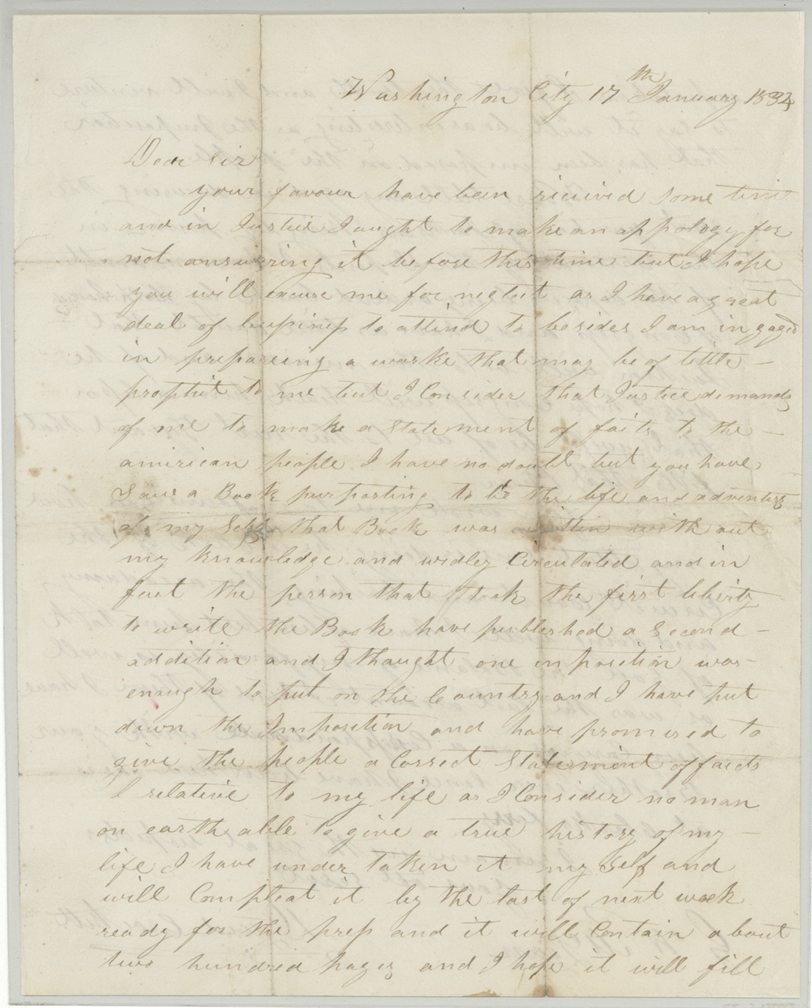 Washington City 17th January 1834
Dear Sir
your favour have been reicived some time
and in Justice I aught to make an appology for
not answering it before this time but I hope
you will excuse me for neglect as I have a great
deal of business to attend to besides I am in gaged
in prepareing a worke that may be of little
prophit to me but I Consider that Justice demands
of me to make a Statement of facts to the
amirican people I have no doubt but you have
Saw a Book purporting to be the life and adventers
of my Self that Book was written with out
my knowledge and widley Circulated and in
fact the person that took the first liberty
to write the Book have published a Second
addition and I thought one imposition was
enough to put on the Country and I have put
down the Imposition and have promised to
give the people a Corect Statement of facts
relative to my life as I Consider no man
on earth able to give a true history of my
life I have under taken it my Self and
will Compleat it by the last of next week
ready for the press and it will Contain about
two hundred pages and I hope it will fill